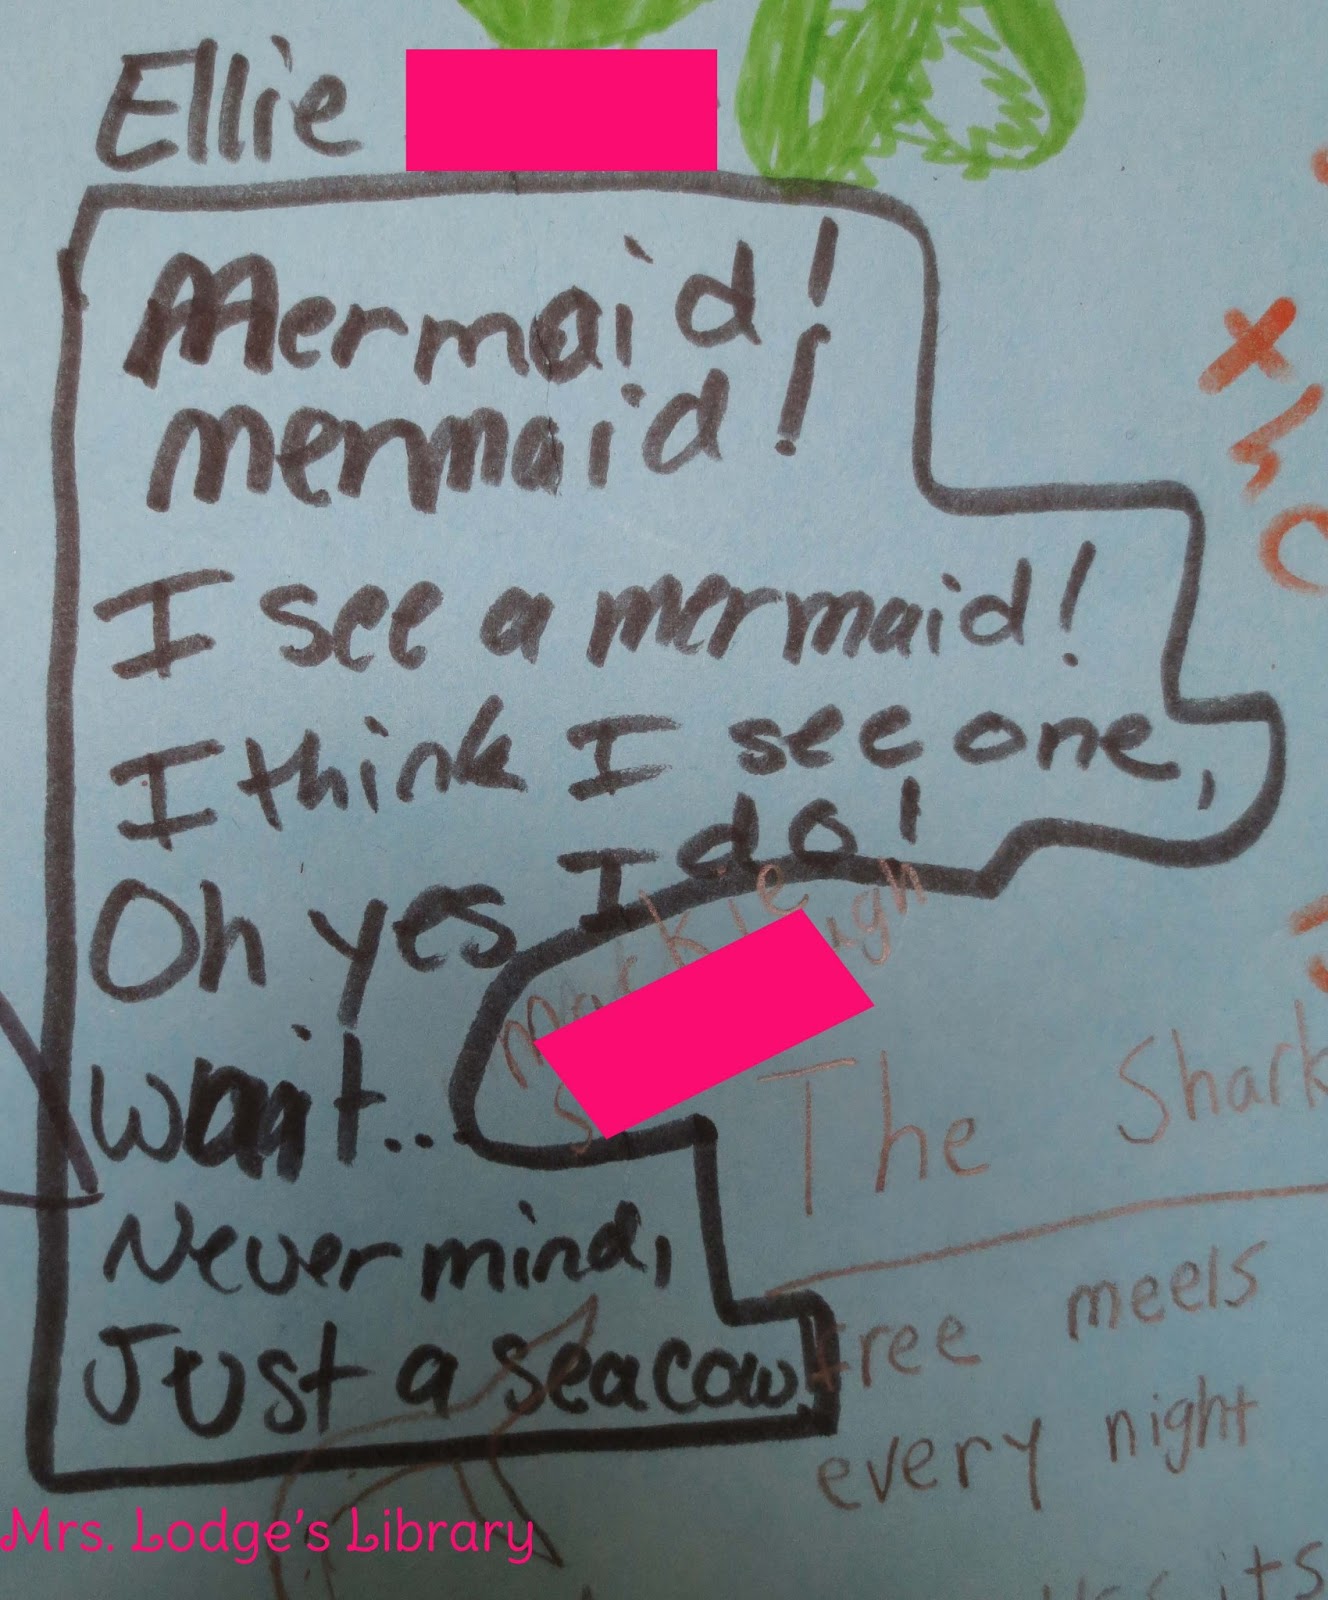 Ellie
Mermaid!
mermaid!
I see a mermaid!
I think I see one,
Oh yes I do!
wait...
Never mind,
Just a seacow!
The Shark
free meels
every night
its
Mrs. Lodge's Library